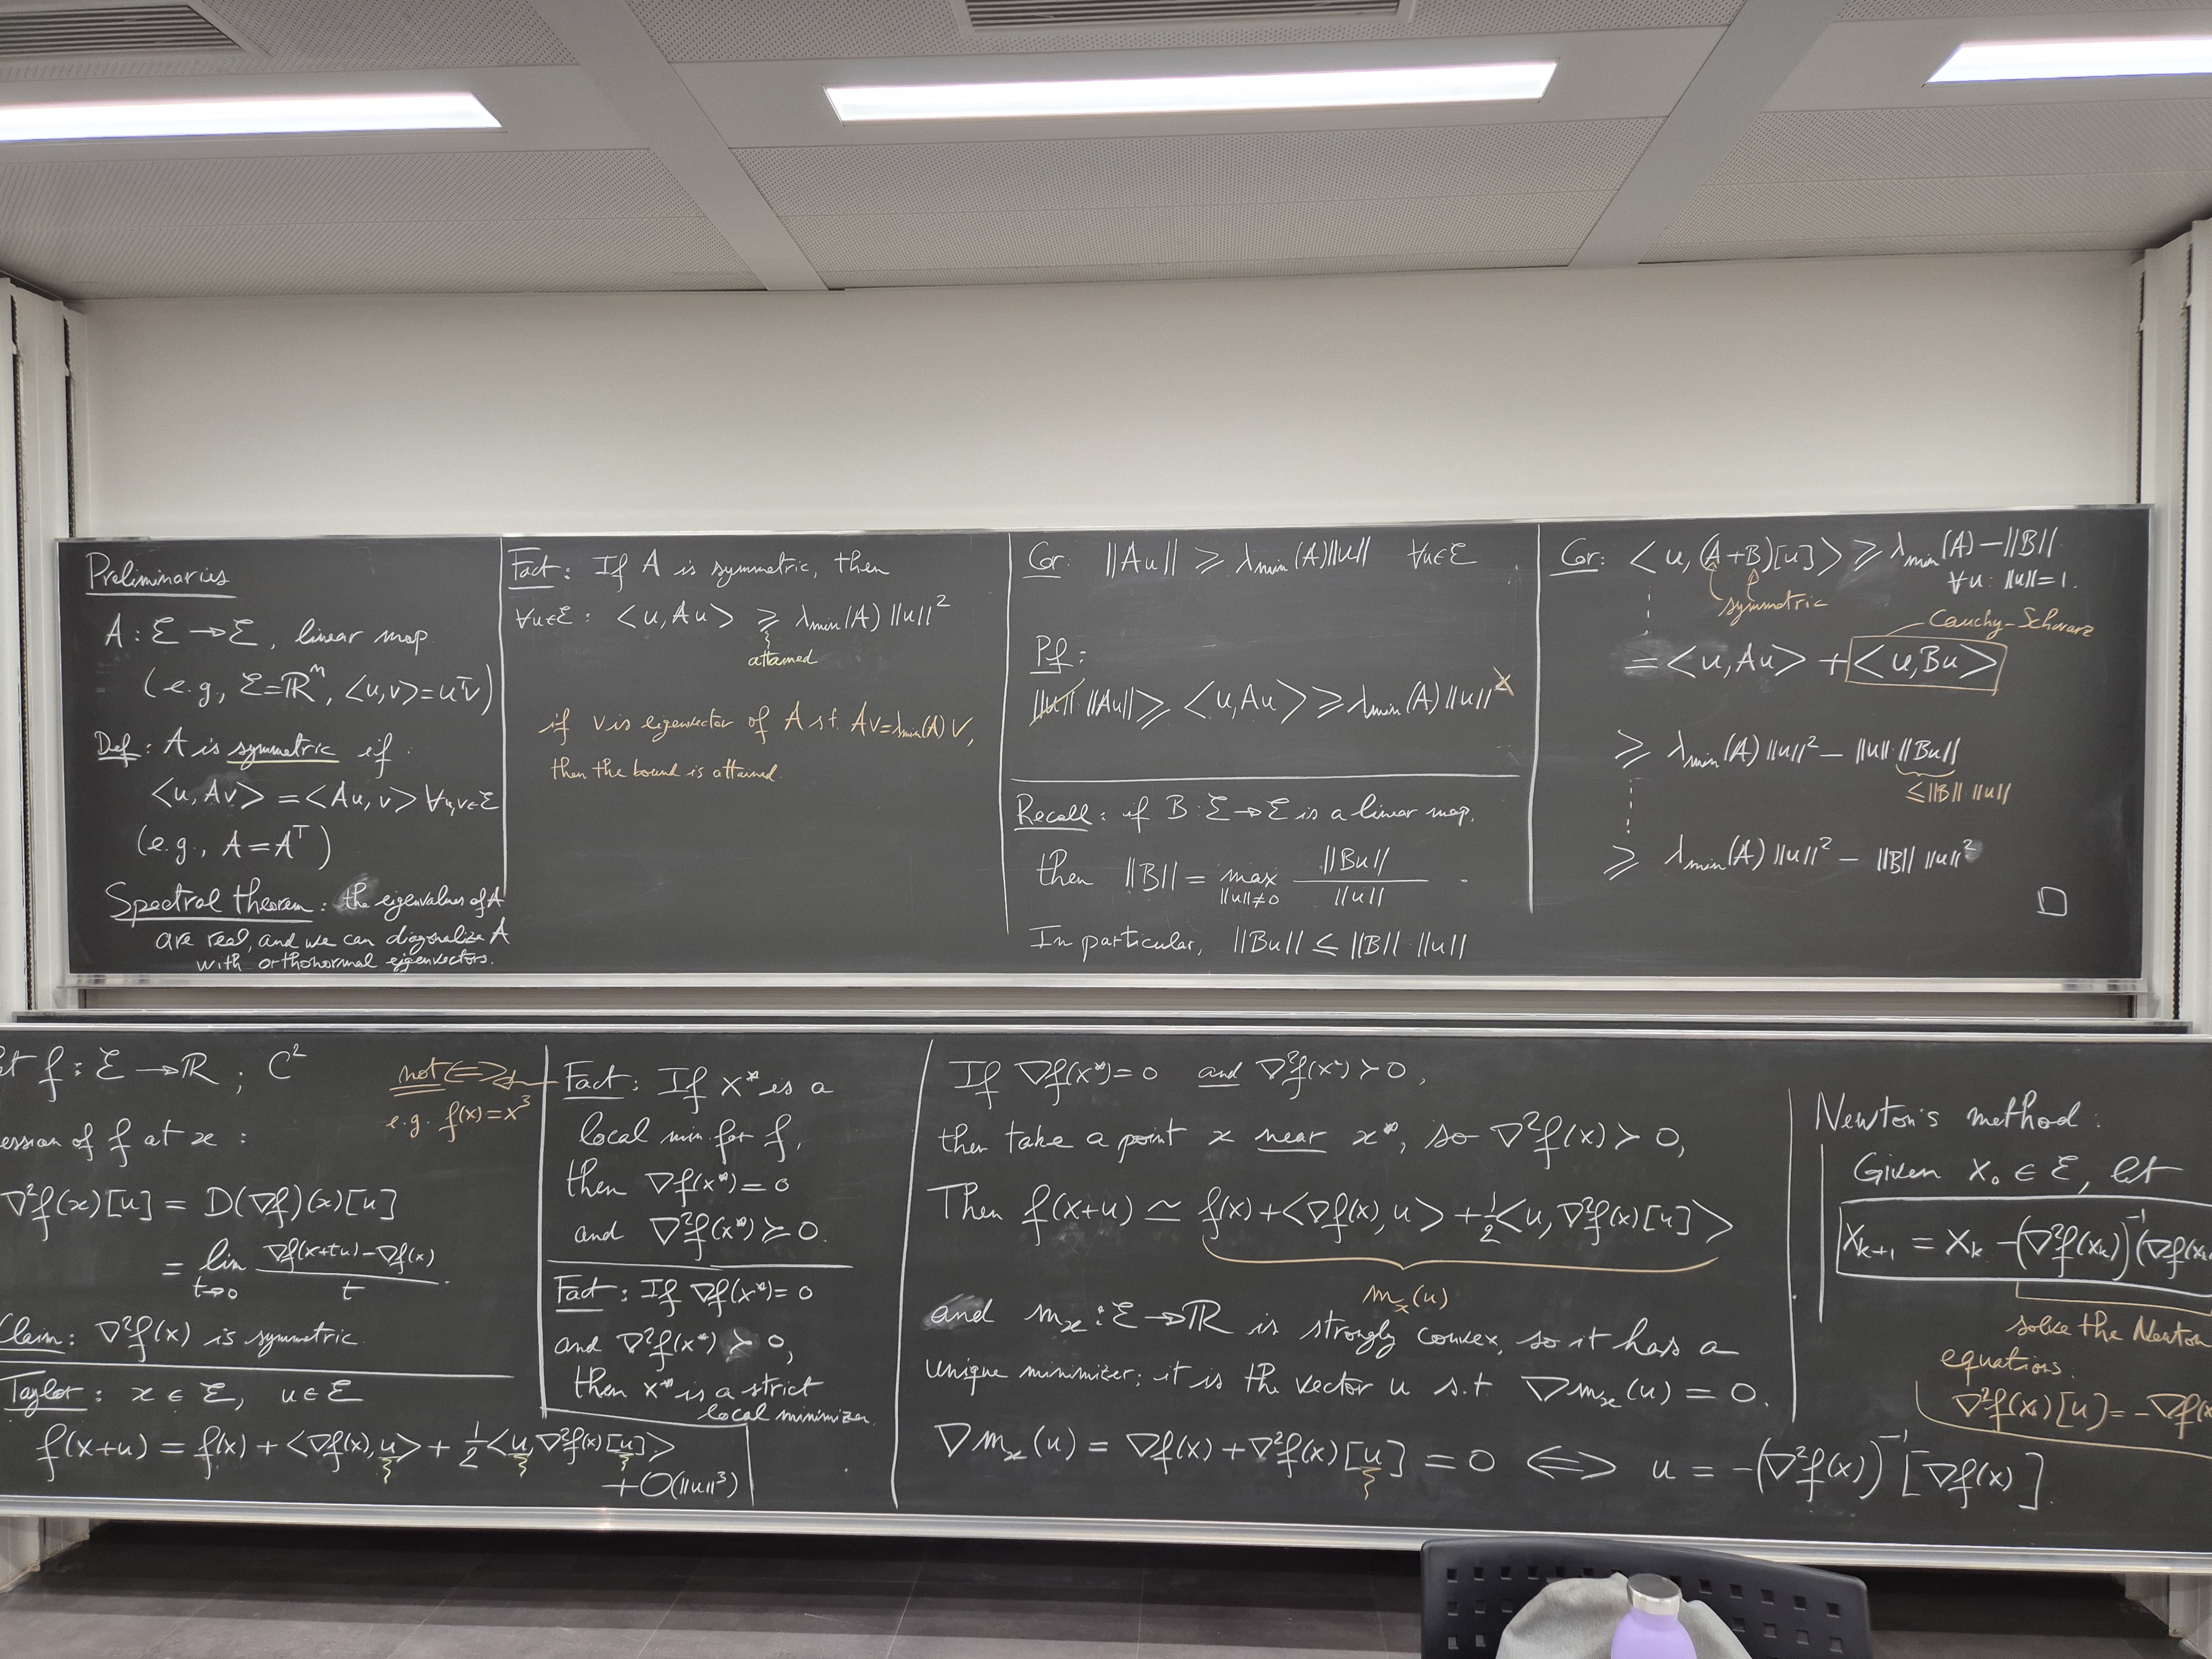 Preliminaries
A : ℰ → ℰ, linear map.
(e.g., ℰ = ℝⁿ, <u,v> = uᵀv)
Def: A is symmetric if:
<u, Av> = <Au, v> ∀u,v∈ℰ
(e.g., A = Aᵀ)
Spectral theorem: the eigenvalues of A
are real, and we can diagonalize A
with orthonormal eigenvectors.
Fact: If A is symmetric, then
∀u∈ℰ: <u, Au> ⩾ λmin(A) ||u||²
attained
if v is eigenvector of A s.t. Av = λmin(A) v,
then the bound is attained.
Cor: ||Au|| ⩾ λmin(A) ||u|| ∀u∈ℰ
Pf:
||u|| ||Au|| ⩾ <u, Au> ⩾ λmin(A) ||u||²
Recall: if B : ℰ → ℰ is a linear map,
then ||B|| = max ||u||≠0 ||Bu|| / ||u|| .
In particular, ||Bu|| ≤ ||B|| ||u||
Cor: <u, (A+B)[u]> ⩾ λmin(A) − ||B||
∀u: ||u||=1.
symmetric
Cauchy-Schwarz
= <u, Au> + <u, Bu>
⩾ λmin(A) ||u||² − ||u|| ||Bu||
≤ ||B|| ||u||
⩾ λmin(A) ||u||² − ||B|| ||u||²
□
f : ℰ → ℝ ; C²
of f at x :
∇²f(x)[u] = D(∇f)(x)[u]
= lim t→0 (∇f(x+tu) − ∇f(x)) / t .
Claim: ∇²f(x) is symmetric
Taylor: x ∈ ℰ, u ∈ ℰ
f(x+u) = f(x) + <∇f(x), u> + ½<u, ∇²f(x)[u]>
+ O(||u||³)
not ⟺
e.g. f(x) = x³
Fact: If x* is a
local min for f,
then ∇f(x*) = 0
and ∇²f(x*) ⪰ 0.
Fact: If ∇f(x*) = 0
and ∇²f(x*) ≻ 0,
then x* is a strict
local minimizer.
If ∇f(x*) = 0 and ∇²f(x*) ≻ 0,
then take a point x near x*, so ∇²f(x) ≻ 0,
Then f(x+u) ≃ f(x) + <∇f(x), u> + ½<u, ∇²f(x)[u]>
mₓ(u)
and mₓ : ℰ → ℝ is strongly convex, so it has a
unique minimizer; it is the vector u s.t. ∇mₓ(u) = 0.
∇mₓ(u) = ∇f(x) + ∇²f(x)[u] = 0 ⟺ u = −(∇²f(x))⁻¹[∇f(x)].
Newton's method:
Given x₀ ∈ ℰ, let
xₖ₊₁ = xₖ − (∇²f(xₖ))⁻¹(∇f(xₖ
solve the Newton
equations.
∇²f(xₖ)[u] = −∇f(x